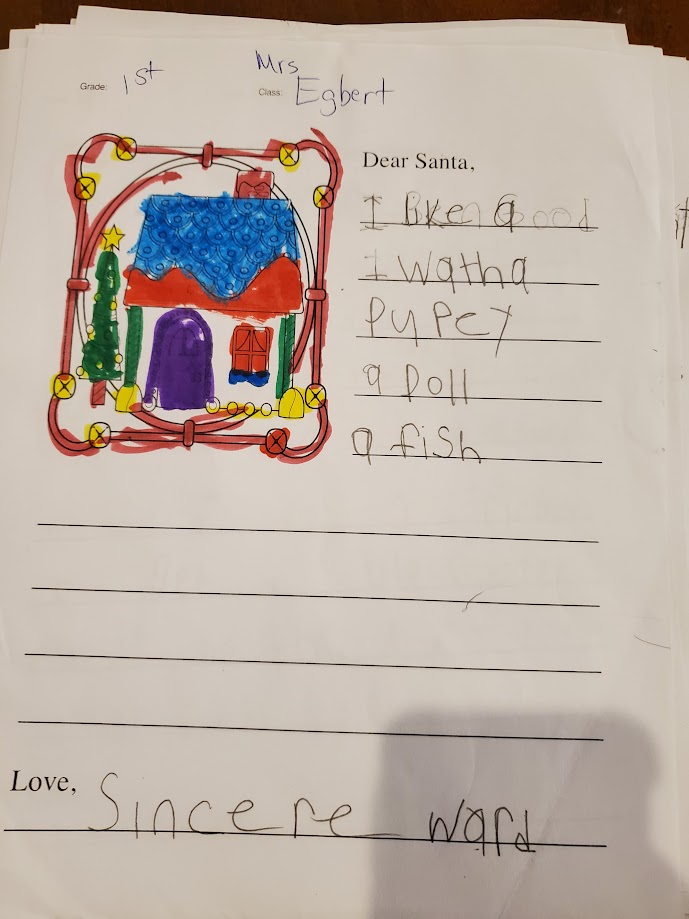 Grade: 1st
Mrs
Class: Egbert
Dear Santa,
I Bken a Good
I watha
PuPey
a Doll
a fish
Love, Sincere ward